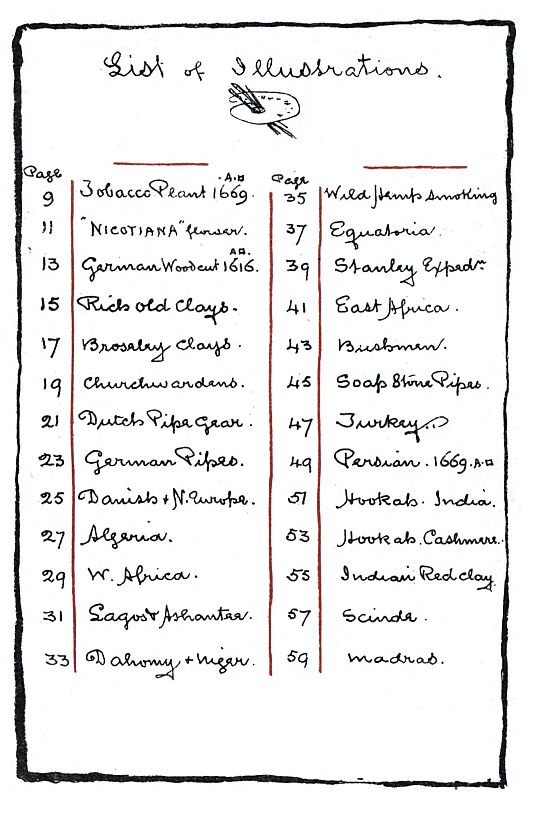 List of Illustrations.
Page
9 Tobacco Plant 1669. A.D
11 "NICOTIANA" flower.
13 German Woodcut 1616. A.D.
15 Rich old Clays.
17 Broseley Clays.
19 Churchwardens.
21 Dutch Pipe Gear.
23 German Pipes.
25 Danish & N. Europe.
27 Algeria.
29 W. Africa.
31 Lagos & Ashantee.
33 Dahomy & Niger.
Page
35 Wild Hemp smoking
37 Equatoria.
39 Stanley Expedn.
41 East Africa.
43 Bushmen.
45 Soap Stone Pipes.
47 Turkey.
49 Persian. 1669. A.D
51 Hookah. India.
53 Hookah. Cashmere.
55 Indian Red clay
57 Scinde.
59 Madras.